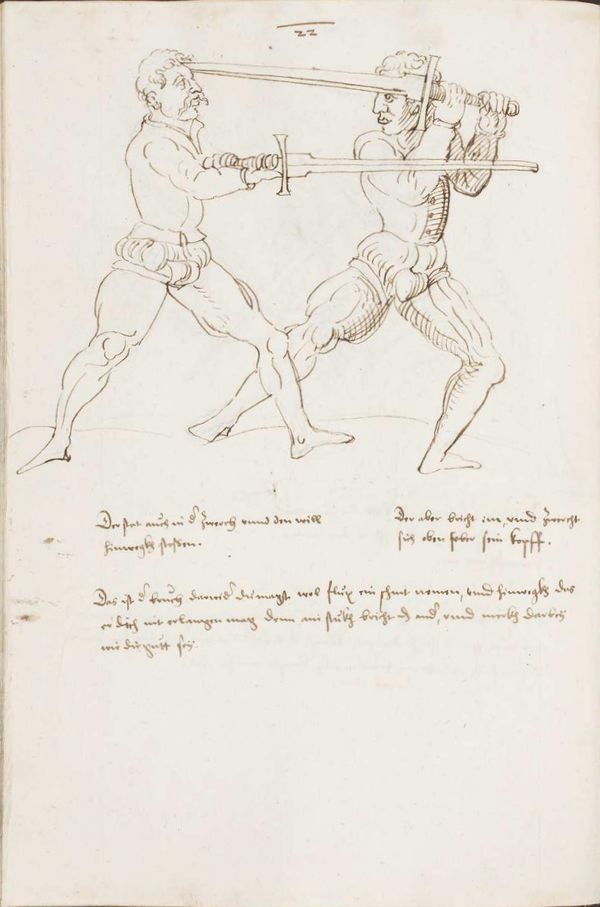 22
Der stat auch in d zwerch vnnd den will
hinwegkh stossen.
Der aber bricht im, vnnd zwercht
sich oben jeber sein kopff.
Das ist d bruch darwid du magst wol flux ein schnit nemen, vnnd hinwegkh das
er dich nit erlangen mag denn ain stukh bricht d and, vnnd merkh darbey
wie dir gutt sey.